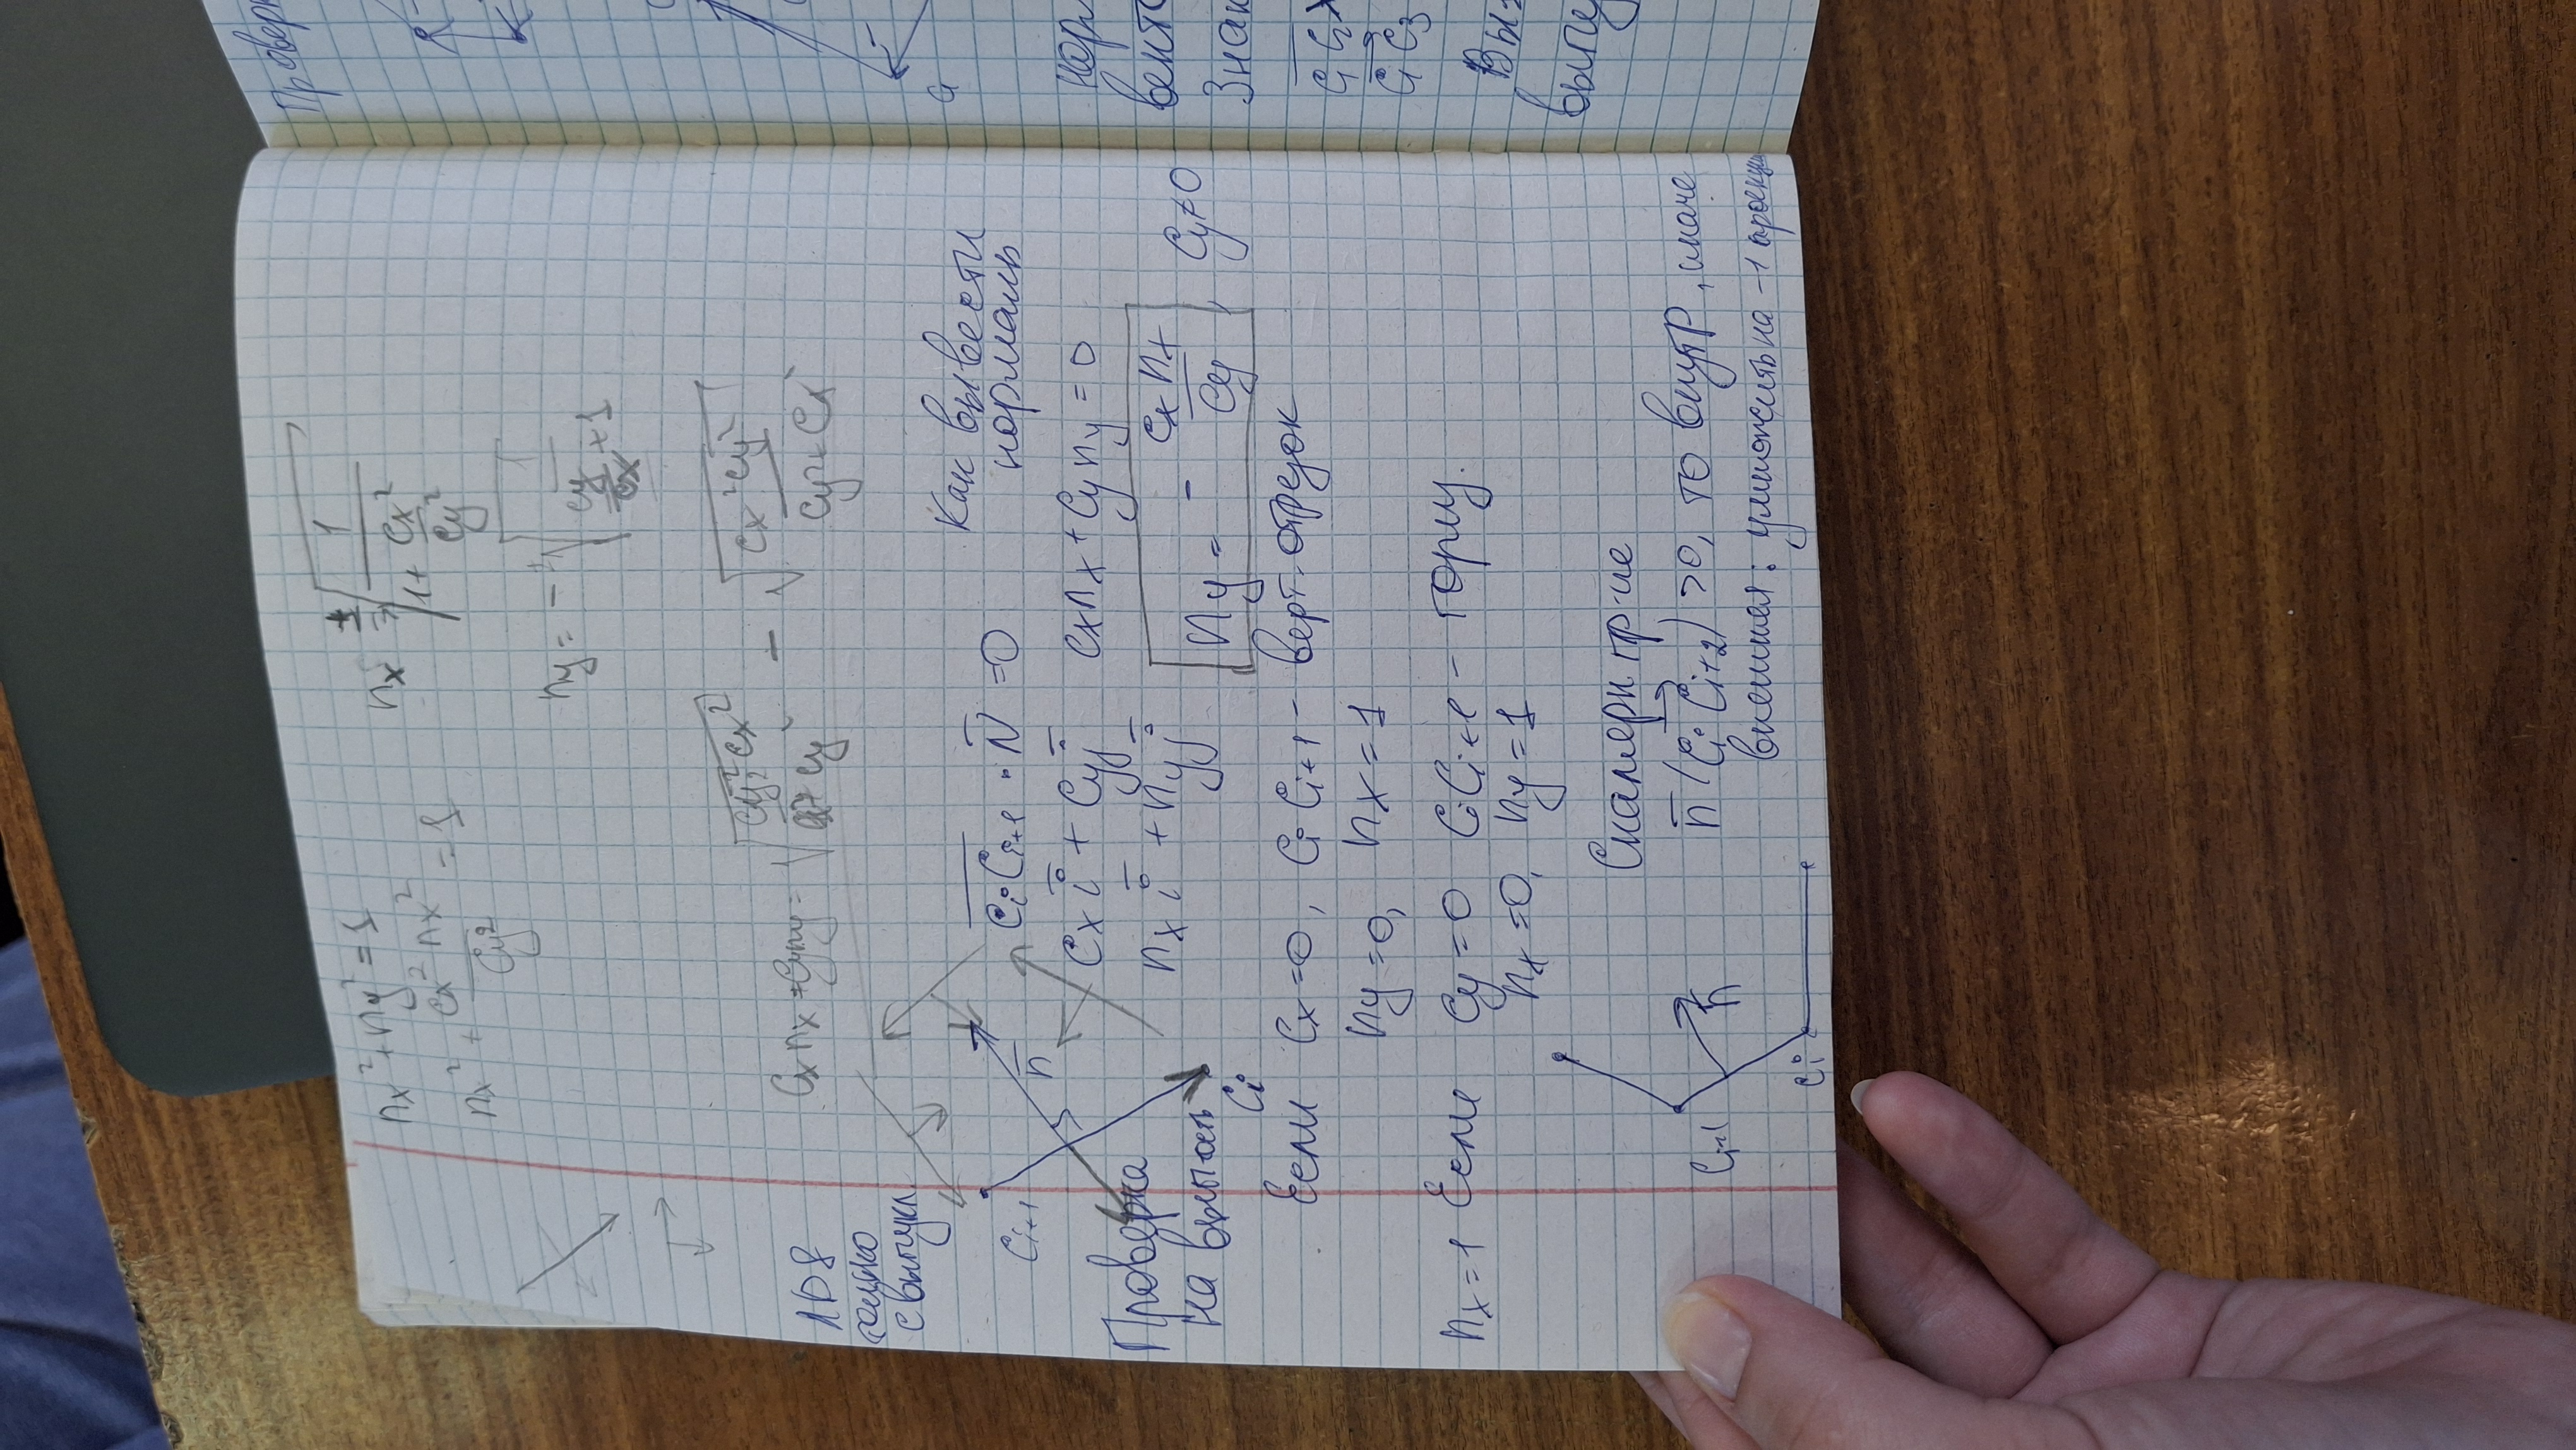 nx² + ny² = 1
nx² + cx² nx² / cy² = 1
nx = ± √(1 / (1 + cx² / cy²))
ny = - √(1 / (cy / cx + 1))
Cx nx + Cy ny = √(cy² cx² / cx² + cy²) - √(cx² cy² / cy² + cx²)
ЛР8
только
с выпукл
Ci+1
n̄
Ci
Проверка
на вып-ость
Как вывести
нормаль
CiCi+1 · N̄ = 0
Cx ī + Cy j̄
cx nx + cy ny = 0
nx ī + ny j̄
ny = - cx nx / cy , Cy ≠ 0
Если Cx = 0, CiCi+1 - верт. отрезок
ny = 0, nx = 1
nx = 1 Если Cy = 0 CiCi+1 - гориз.
nx = 0, ny = 1
Ci+1
n̄
Ci
Скалярн пр-ие
n̄ (CiCi+2) > 0, то внутр, иначе
внешняя: умножить на -1 проекции
Проверк
a
норм
векто
Знак
Вы-
выпу